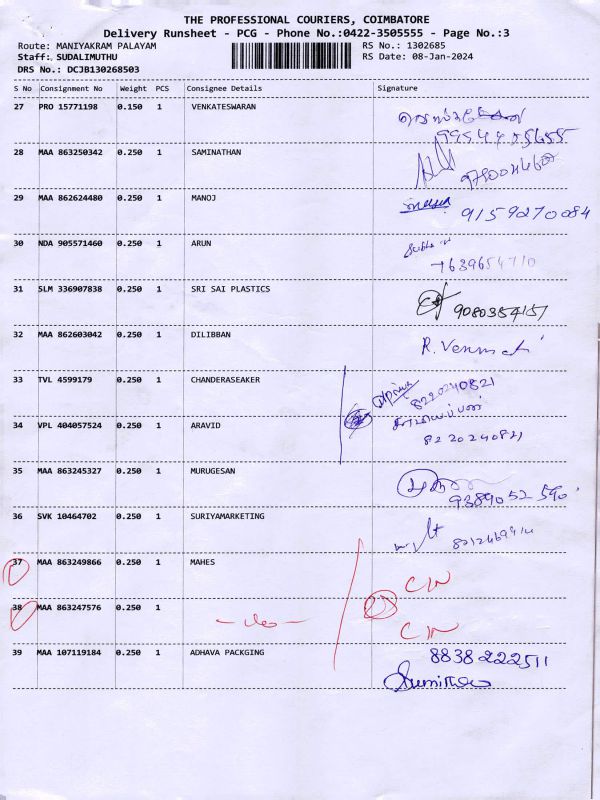 THE PROFESSIONAL COURIERS, COIMBATORE
Delivery Runsheet - PCG - Phone No.:0422-3505555 - Page No.:3
Route: MANIYAKRAM PALAYAM RS No.: 1302685
Staff: SUDALIMUTHU RS Date: 08-Jan-2024
DRS No.: DCJB130268503
S No Consignment No Weight PCS Consignee Details Signature
27 PRO 15771198 0.150 1 VENKATESWARAN
28 MAA 863250342 0.250 1 SAMINATHAN
29 MAA 862624480 0.250 1 MANOJ
9159270084
30 NDA 905571460 0.250 1 ARUN
31 SLM 336907838 0.250 1 SRI SAI PLASTICS
9080354157
32 MAA 862603042 0.250 1 DILIBBAN
33 TVL 4599179 0.250 1 CHANDERASEAKER
8220240821
34 VPL 404057524 0.250 1 ARAVID
8220240821
35 MAA 863245327 0.250 1 MURUGESAN
36 SVK 10464702 0.250 1 SURIYAMARKETING
37 MAA 863249866 0.250 1 MAHES
38 MAA 863247576 0.250 1
39 MAA 107119184 0.250 1 ADHAVA PACKGING
8838222511